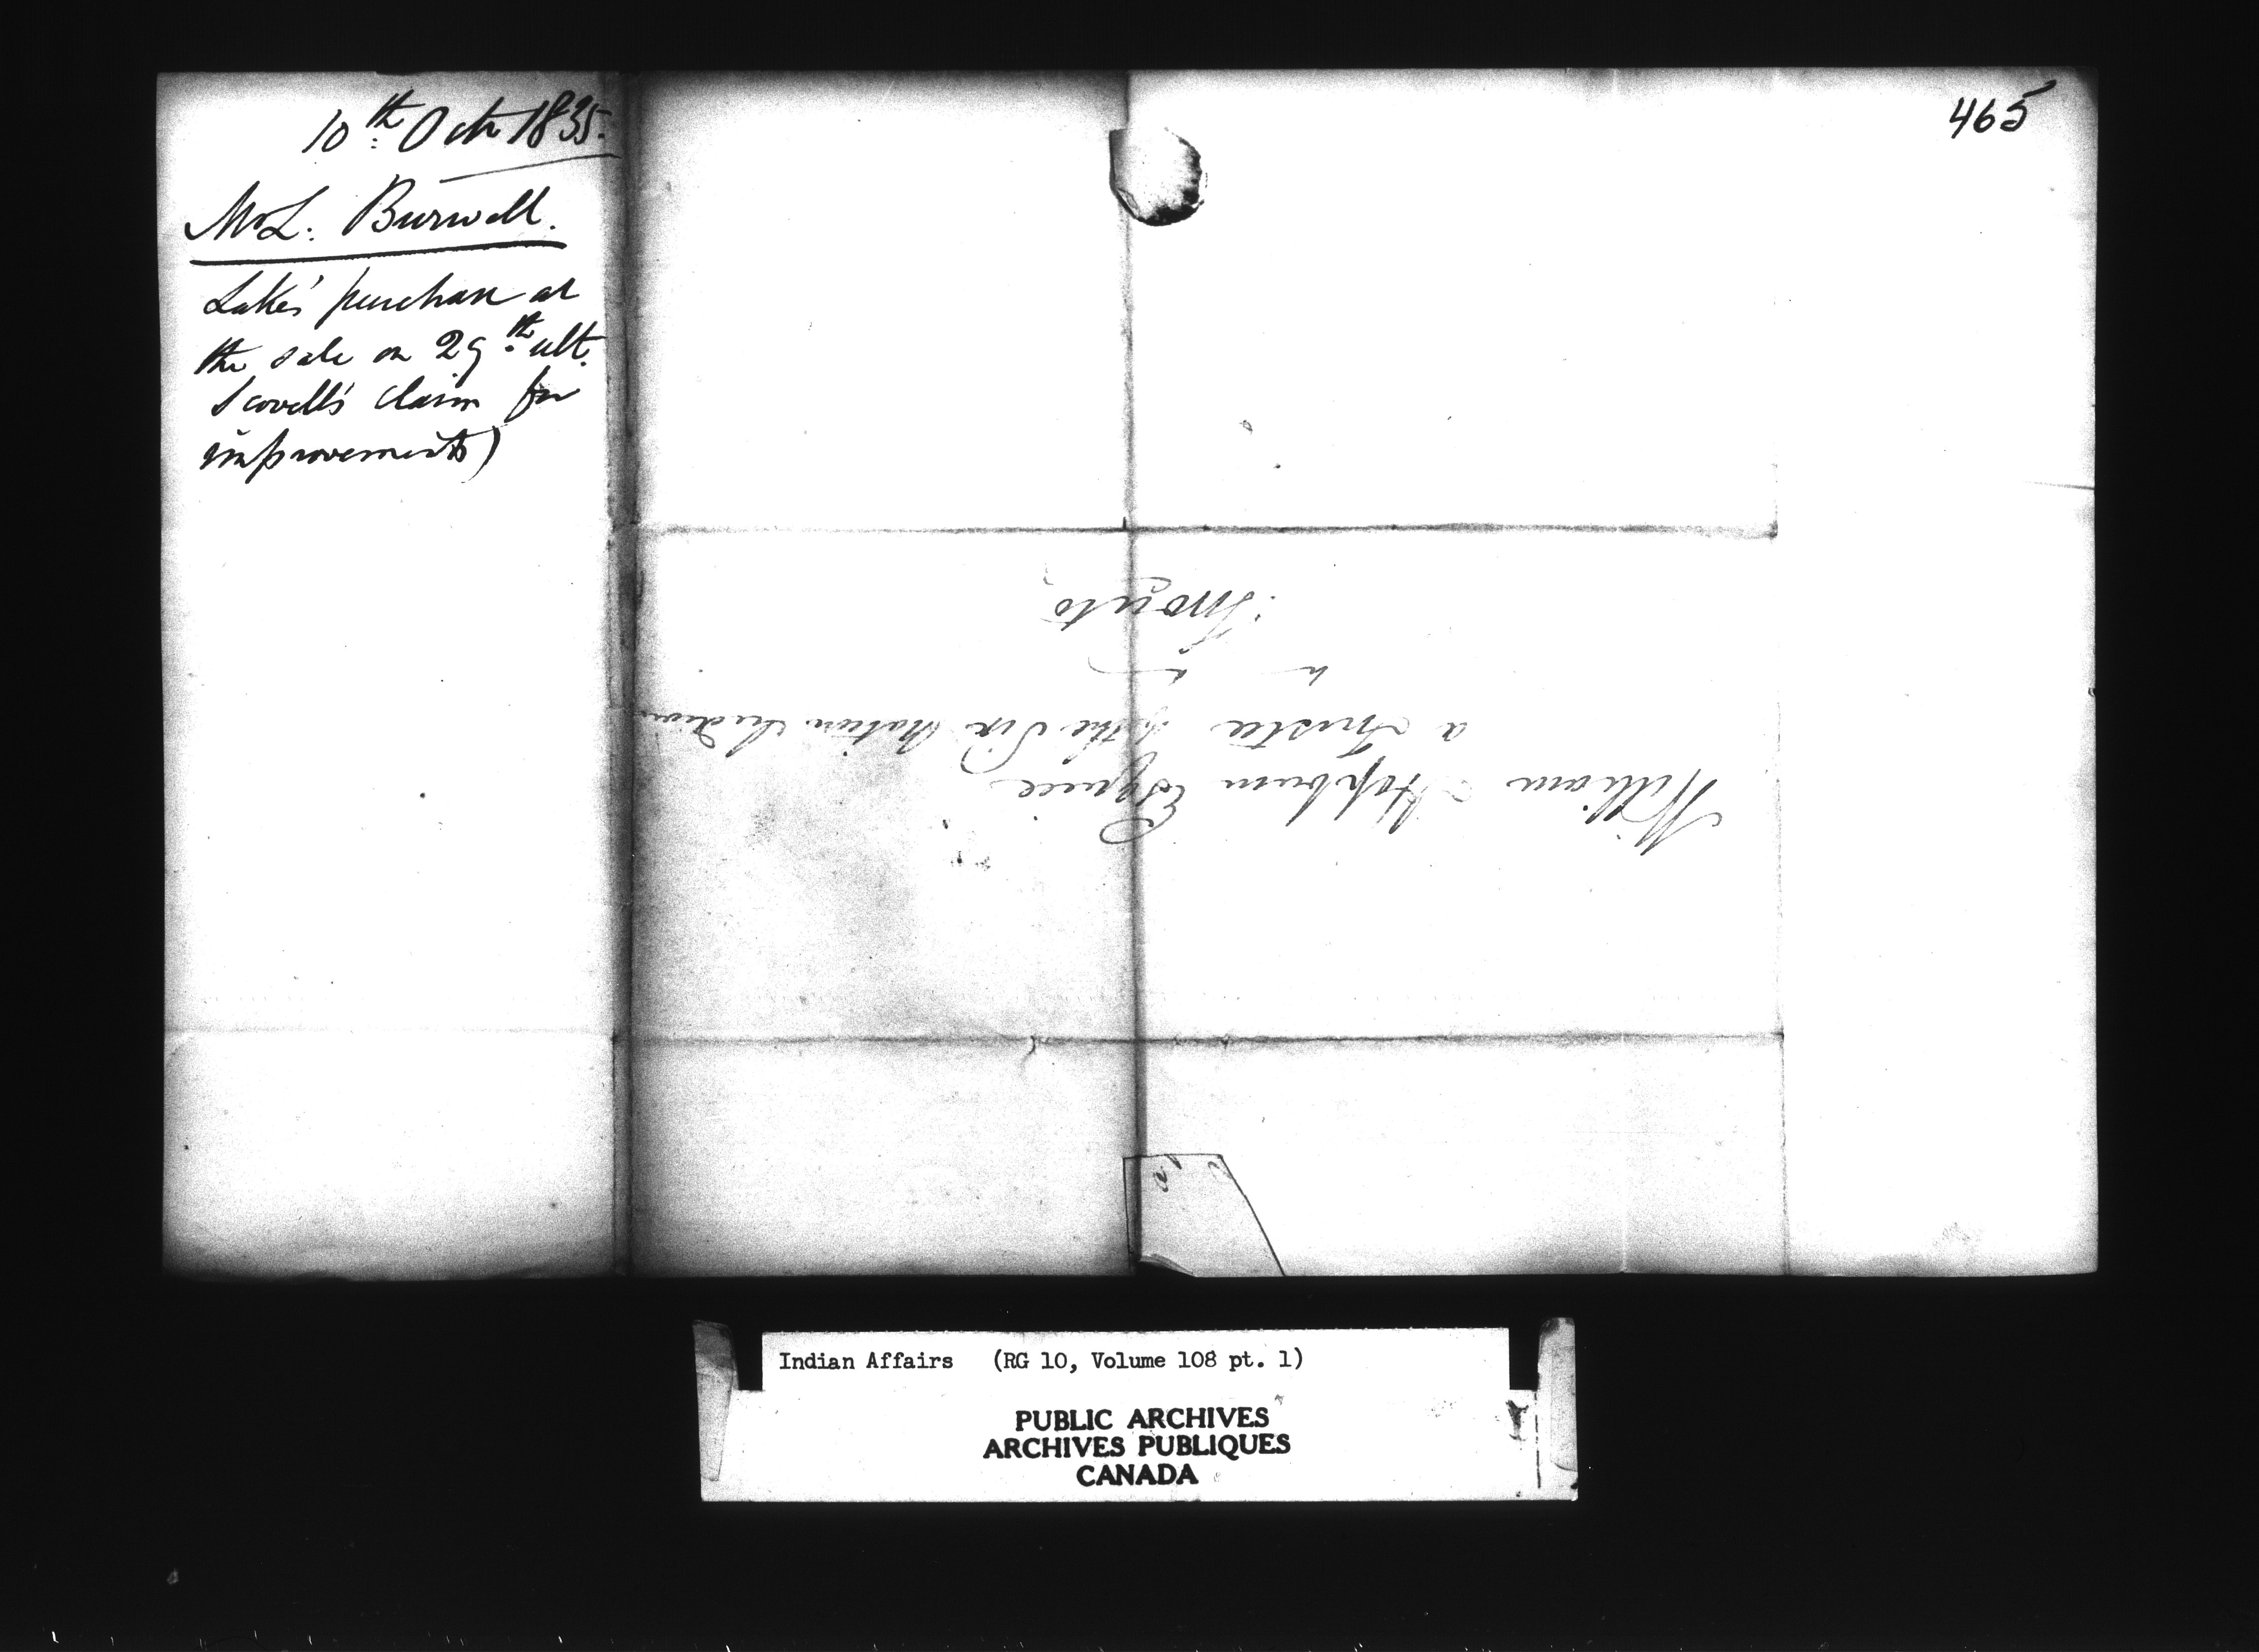 465
10th Octr 1835.
L. Burwell.
Lake's purchase at
the sale on 29th ult.
Scovell's claim for
improvements)
William Hepburn Esquire
a Trustee of the Six Nation Indians
Toronto
Indian Affairs (RG 10, Volume 108 pt. 1)
PUBLIC ARCHIVES
ARCHIVES PUBLIQUES
CANADA